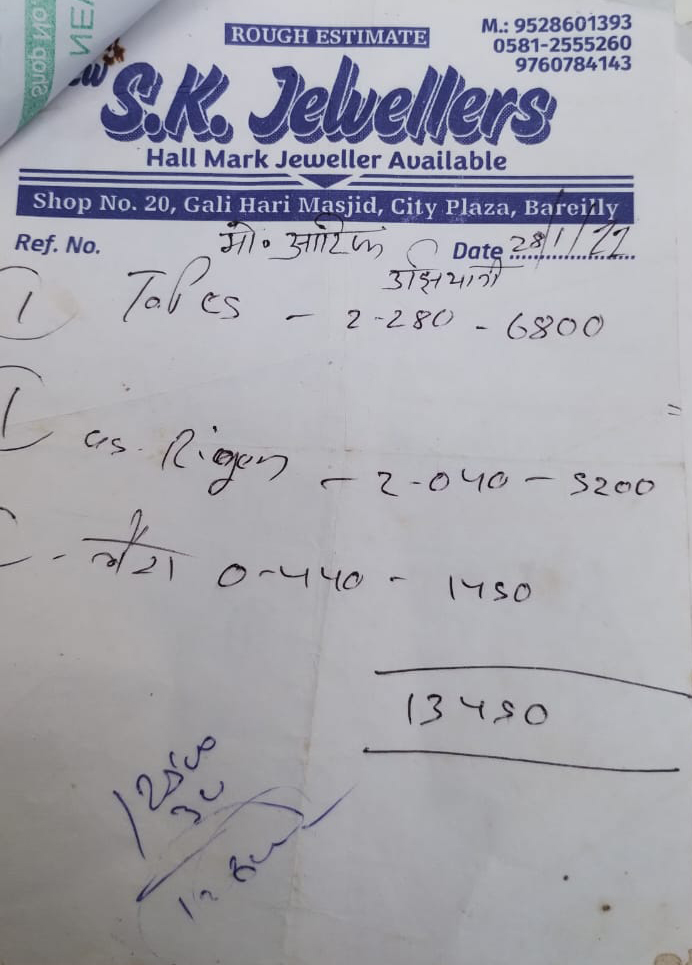 Shop No.
NEW
ROUGH ESTIMATE
M.: 9528601393
0581-2555260
9760784143
S.K. Jewellers
Hall Mark Jeweller Available
Shop No. 20, Gali Hari Masjid, City Plaza, Bareilly
Ref. No. मो॰ आतिफ Date 28/1/22
1 Tops - 2-280 - 6800
1 - 2-040 - 5200
0-440 - 1450
13450
12500